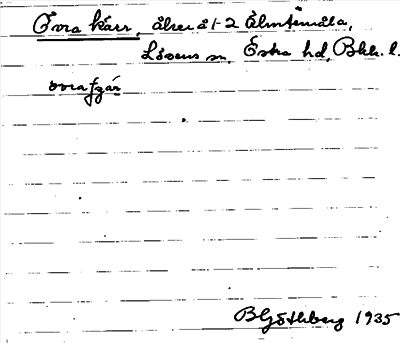 Övra kärr, åker å 1-2 Älmtemåla,
Lösens sn, Östra hd, Blek. l.
övrafzär
B Göthberg 1935